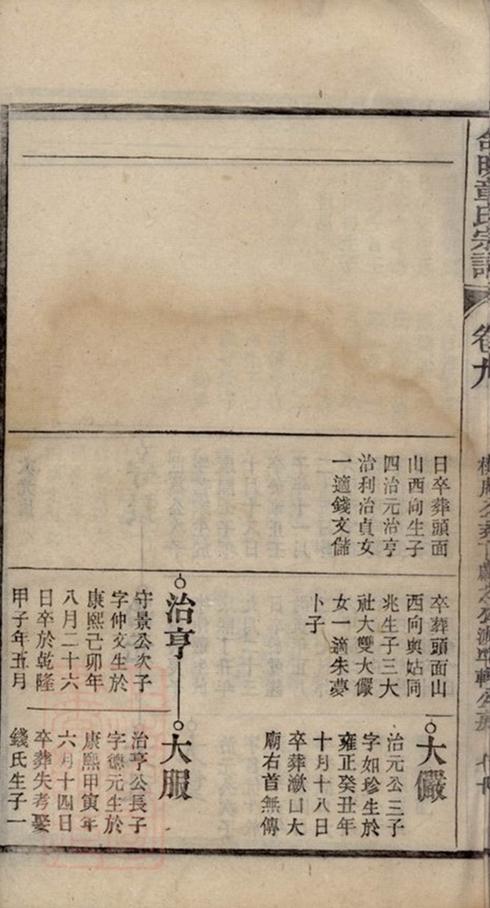 章氏宗譜
卷九
日卒葬頭面
山西向生子
四治元治亨
治利治貞女
一適錢文儲
卒葬頭面山
西向與姑同
兆生子三大
社大雙大儼
女一適朱夢
卜子
大儼
治元公三子
字如珍生於
雍正癸丑年
十月十八日
卒葬漱口大
廟右首無傳
治亨
守景公次子
字仲文生於
康熙己卯年
八月二十六
日卒於乾隆
甲子年五月
大服
治亨公長子
字德元生於
康熙甲寅年
六月十四日
卒葬失考娶
錢氏生子一